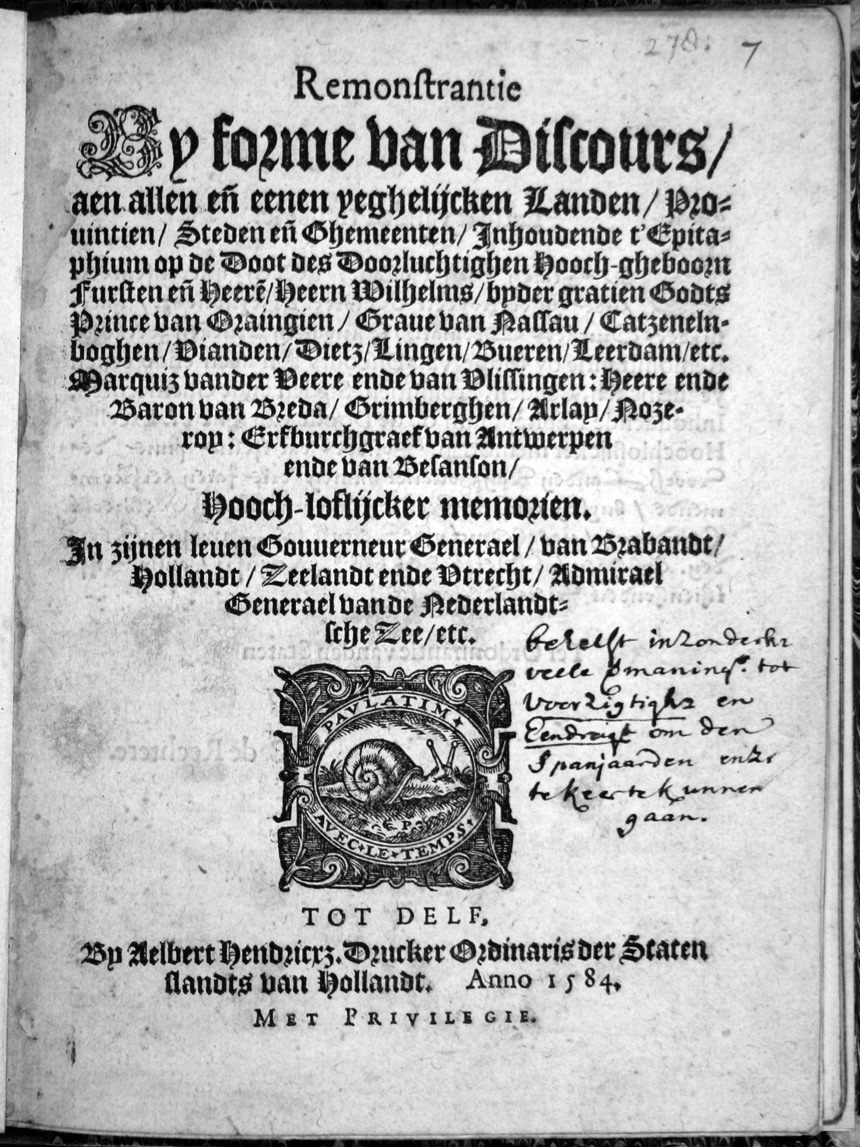 278. 7
Remonſtrantie
By forme van Diſcours/
aen allen eñ eenen yeghelijcken Landen/ Pro⸗
uintien/ Steden eñ Ghemeenten/ Inhoudende t'Epita⸗
phium op de Doot des Doorluchtighen Hooch-gheboorn
Furſten eñ Heerẽ/Heern Wilhelms/byder gratien Godts
Prince van Oraingien/ Graue van Naſſau/ Catzeneln-
boghen/Vianden/Dietz/Lingen/Bueren/Leerdam/etc.
Marquiz vander Veere ende van Vliſſingen: Heere ende
Baron van Breda/ Grimberghen/ Arlay/ Noze-
roy: Erfburchgraef van Antwerpen
ende van Beſanſon/
Hooch-loflijcker memorien.
In zijnen leuen Gouuerneur Generael/ van Brabandt/
Hollandt/ Zeelandt ende Vtrecht/ Admirael
Generael vande Nederlandt⸗
ſche Zee/etc.
behelst inzonderhr
veele tot
voorzigtighr en
Eendragt om den
Spanjaarden
te keer te kunnen
gaan.
PAVLATIM
E P
AVEC LE TEMPS
TOT DELF,
By Aelbert Hendricxz. Drucker Ordinaris der Staten
ſlandts van Hollandt. Anno 1584.
MET PRIVILEGIE.